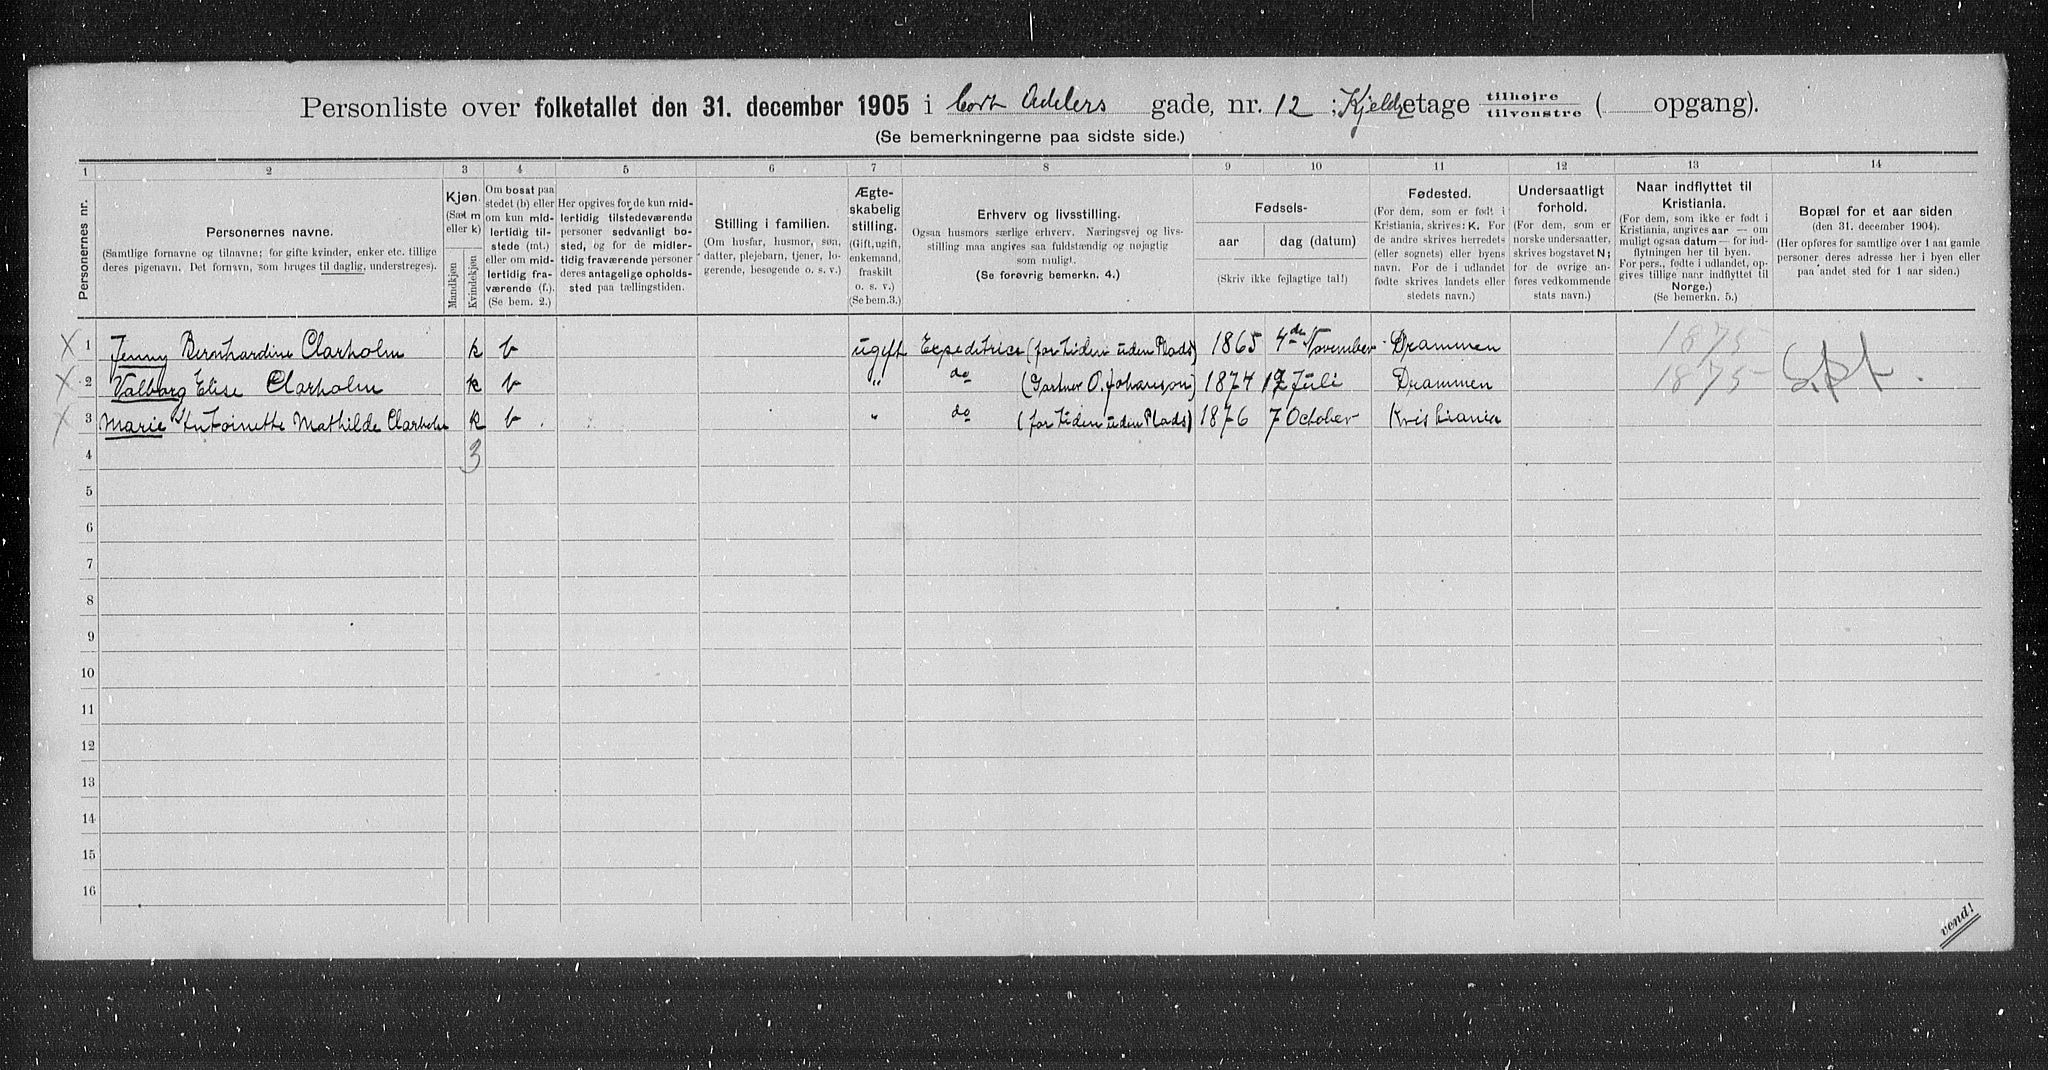 Personliste over folketallet den 31. december 1905 i Cort Adelers gade, nr. 12 ; Kjeld etage tilhøjre / tilvenstre ( opgang).
(Se bemerkningerne paa sidste side.)
1 2 3 4 5 6 7 8 9 10 11 12 13 14
Personernes nr.
Personernes navne.
(Samtlige fornavne og tilnavne; for gifte kvinder, enker etc. tillige deres pigenavn. Det fornavn, som bruges til daglig, understreges).
Kjøn.
(Sæt m eller k)
Mandkjøn
Kvindekjøn
Om bosat paa stedet (b) eller om kun midlertidig tilstede (mt.) eller om midlertidig fraværende (f.). (Se bem. 2.)
Her opgives for de kun midlertidig tilstedeværende personer sedvanligt bosted, og for de midlertidig fraværende personer deres antagelige opholdssted paa tællingstiden.
Stilling i familien.
(Om husfar, husmor, søn, datter, plejebarn, tjener, logerende, besøgende o. s. v.)
Ægteskabelig stilling.
(Gift, ugift, enkemand, fraskilt o. s. v.)
(Se bem. 3.)
Erhverv og livsstilling.
Ogsaa husmors særlige erhverv. Næringsvej og livsstilling maa angives saa fuldstændig og nøjagtig som muligt.
(Se forøvrig bemerkn. 4.)
Fødsels-
aar
dag (datum)
(Skriv ikke fejlagtige tal!)
Fødested.
(For dem, som er født i Kristiania, skrives: K. For de andre skrives herredets (eller sognets) eller byens navn. For de i udlandet fødte skrives landets eller stedets navn.)
Undersaatligt forhold.
(For dem, som er norske undersaatter, skrives bogstavet N; for de øvrige anføres vedkommende stats navn.)
Naar indflyttet til Kristiania.
(For dem, som ikke er født i Kristiania, angives aar — om muligt ogsaa datum — for indflytningen her til byen. For pers., fødte i udlandet, opgives tillige naar indflyttet til Norge.)
(Se bemerkn. 5.)
Bopæl for et aar siden
(den 31. december 1904).
(Her opføres for samtlige over 1 aar gamle personer deres adresse her i byen eller paa andet sted for 1 aar siden.)
X 1 Jenny Bernhardine Clarholm k b ugift Expeditrice (for tiden uden Plads) 1865 4de November Drammen 1875
X 2 Valborg Elise Clarholm k b " do (Gartner O. Johanson) 1874 12 Juli Drammen 1875
X 3 Marie Antoinette Mathilde Clarholm k b " do (for tiden uden Plads) 1876 7 October Kristiania
4 3
5
6
7
8
9
10
11
12
13
14
15
16
vend!